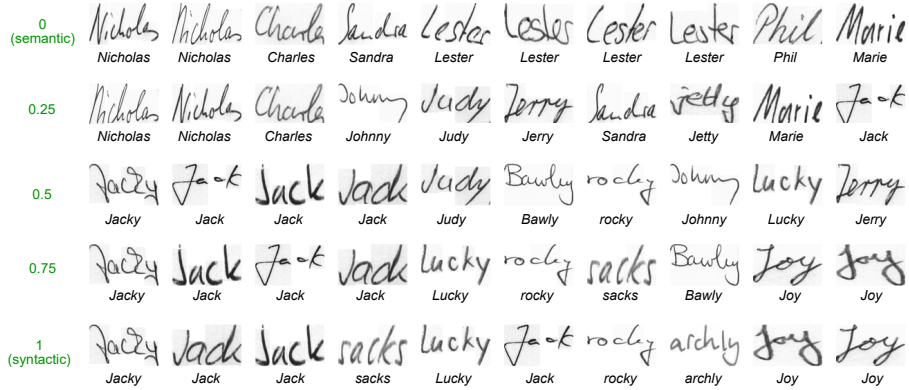 0 (semantic) Nicholas Nicholas Charles Sandra Lester Lester Lester Lester Phil. Marie
Nicholas Nicholas Charles Sandra Lester Lester Lester Lester Phil Marie
0.25 Nicholas Nicholas Charles Johnny Judy Jerry Sandra jetty Marie Jack
Nicholas Nicholas Charles Johnny Judy Jerry Sandra Jetty Marie Jack
0.5 Jacky Jack Jack Jack Judy Bawly rocky Johnny Lucky Jerry
Jacky Jack Jack Jack Judy Bawly rocky Johnny Lucky Jerry
0.75 Jacky Jack Jack Jack Lucky rocky sacks Bawly Joy Joy
Jacky Jack Jack Jack Lucky rocky sacks Bawly Joy Joy
1 (syntactic) Jacky Jack Jack sacks Lucky Jack rocky archly Joy Joy
Jacky Jack Jack sacks Lucky Jack rocky archly Joy Joy